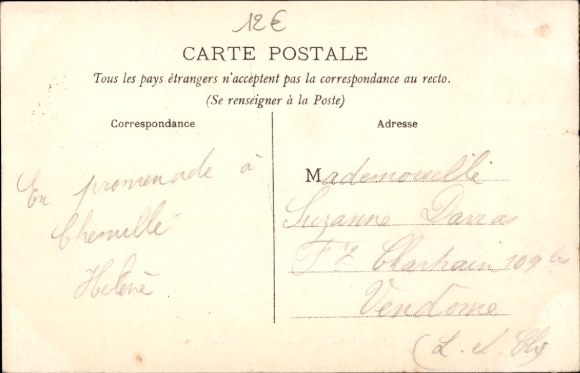 12€
CARTE POSTALE
Tous les pays étrangers n'acceptent pas la correspondance au recto.
(Se renseigner à la Poste)
Correspondance
Adresse
En promenade à
Chemillé
Hélène
Mademoiselle
Suzanne Darras
Fg Chartrain 109 bis
Vendôme
(L. et Ch)